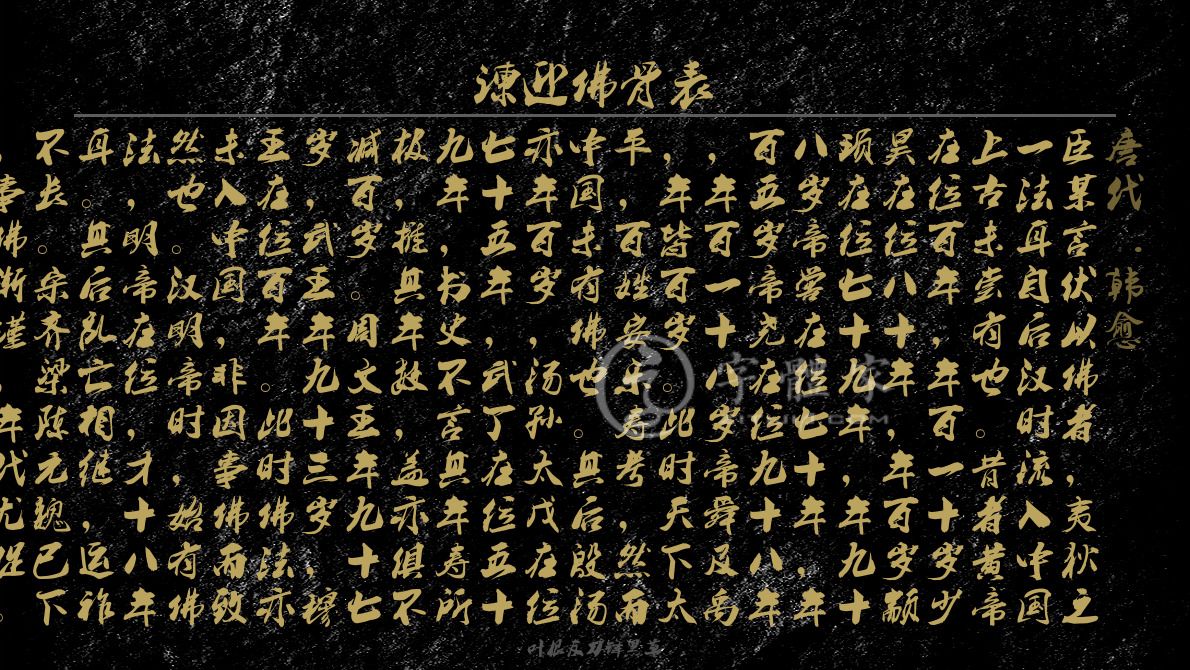 谏迎佛骨表
唐代·韩愈
臣某言伏以佛者，夷狄之
一法耳自后汉时流入中国
上古未崇有也。昔者黄帝
在位百年，年百一十岁少
昊在位八十年，年百岁颛
顼在位七十九年，年九十
八岁帝喾在位七十年，年
百五岁帝尧在位九十八年
，年百一十八岁帝舜及禹
，年皆百岁。此时天下太
平，百姓安乐寿考，然而
中国未有佛也。其后殷汤
亦年百岁，汤孙太戊在位
七十五年，武丁在位五十
九年，书史不言其年寿所
极，推其年数，盖亦俱不
减百岁。周文王年九十七
岁，武王年九十三岁，穆
王在位百年，此时佛法亦
未入中国，非因事佛而致
然也。汉明帝时，始有佛
法，明帝在位，才十八年
耳。其后乱亡相继，运祚
不长。宋齐梁陈元魏已下
，事佛渐谨，年代尤促。
字體家
叶根友刀锋黑草